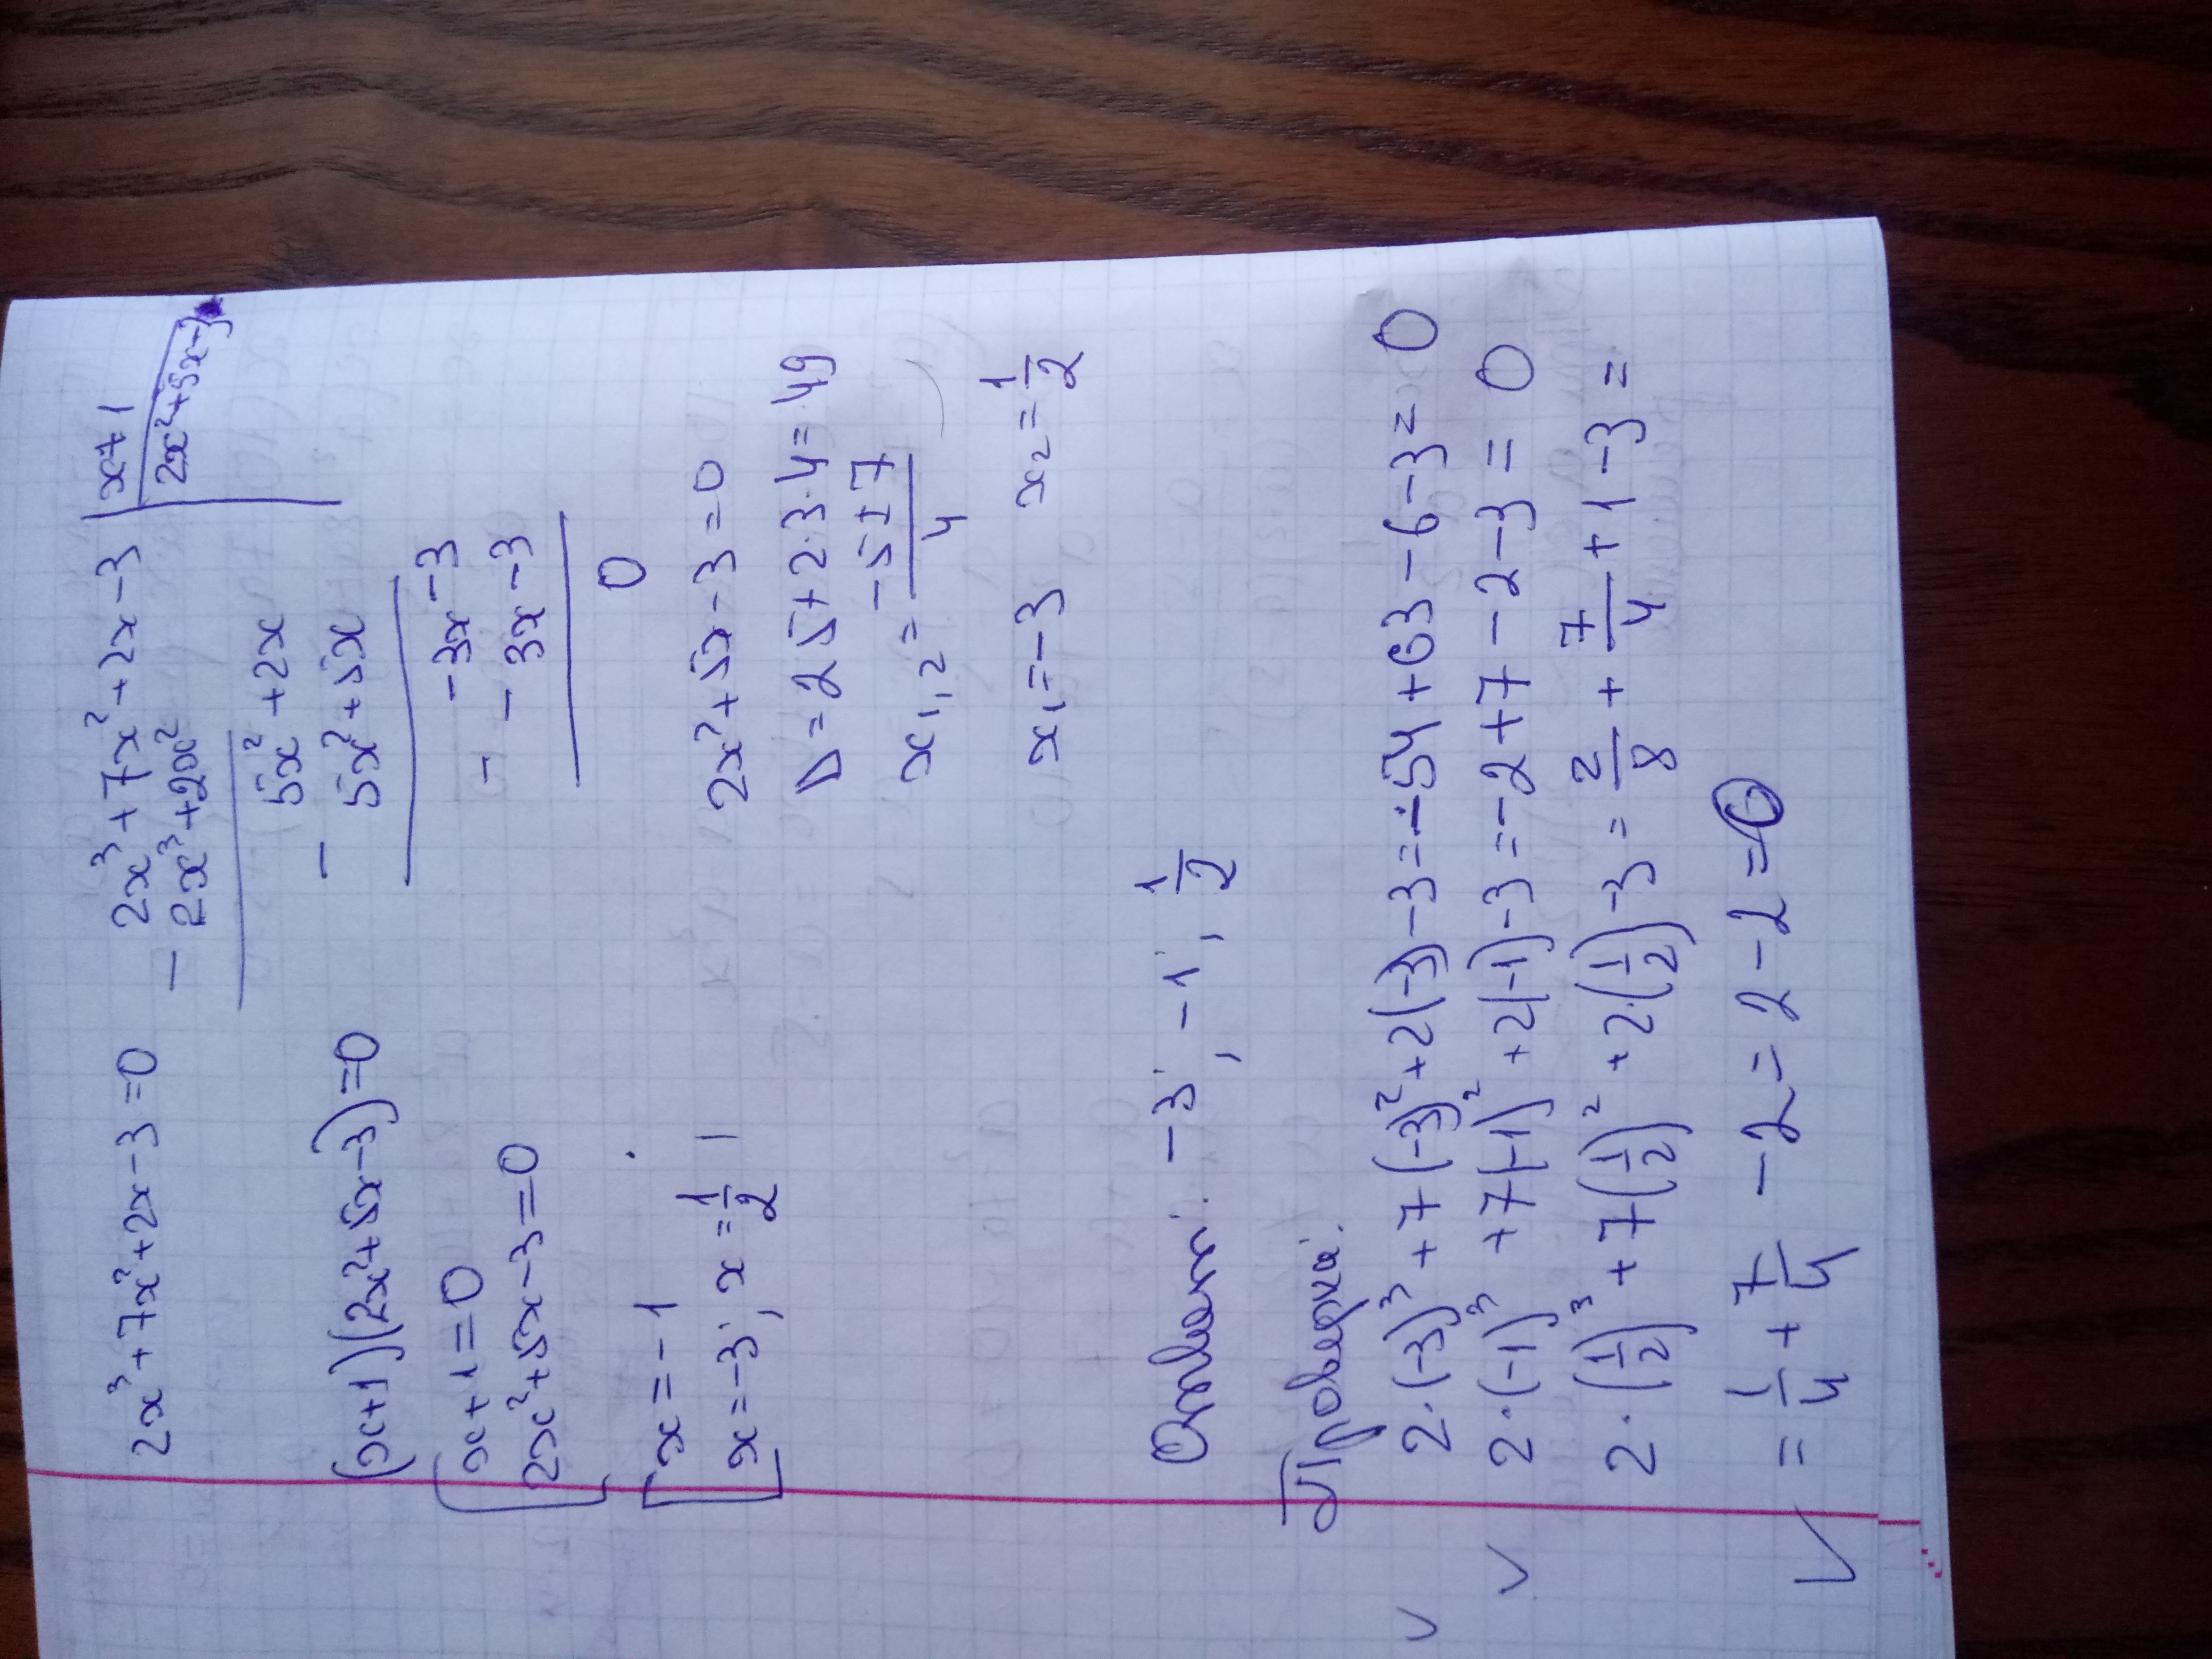 2x³+7x²+2x-3=0
(x+1)(2x²+5x-3)=0
x+1=0
2x²+5x-3=0
x=-1
x=-3; x=1/2
2x³+7x²+2x-3 | x+1
- 2x³+2x² | 2x²+5x-3
5x²+2x
- 5x²+5x
-3x-3
- -3x-3
0
2x²+5x-3=0
D=25+2·3·4=49
x₁,₂=(-5±7)/4
x₁=-3 x₂=1/2
Ответ: -3; -1; 1/2
Проверка:
2·(-3)³+7(-3)²+2(-3)-3=-54+63-6-3=0
2·(-1)³+7(-1)²+2(-1)-3=-2+7-2-3=0
2·(1/2)³+7(1/2)²+2·(1/2)-3=2/8+7/4+1-3=
=1/4+7/4-2=2-2=0